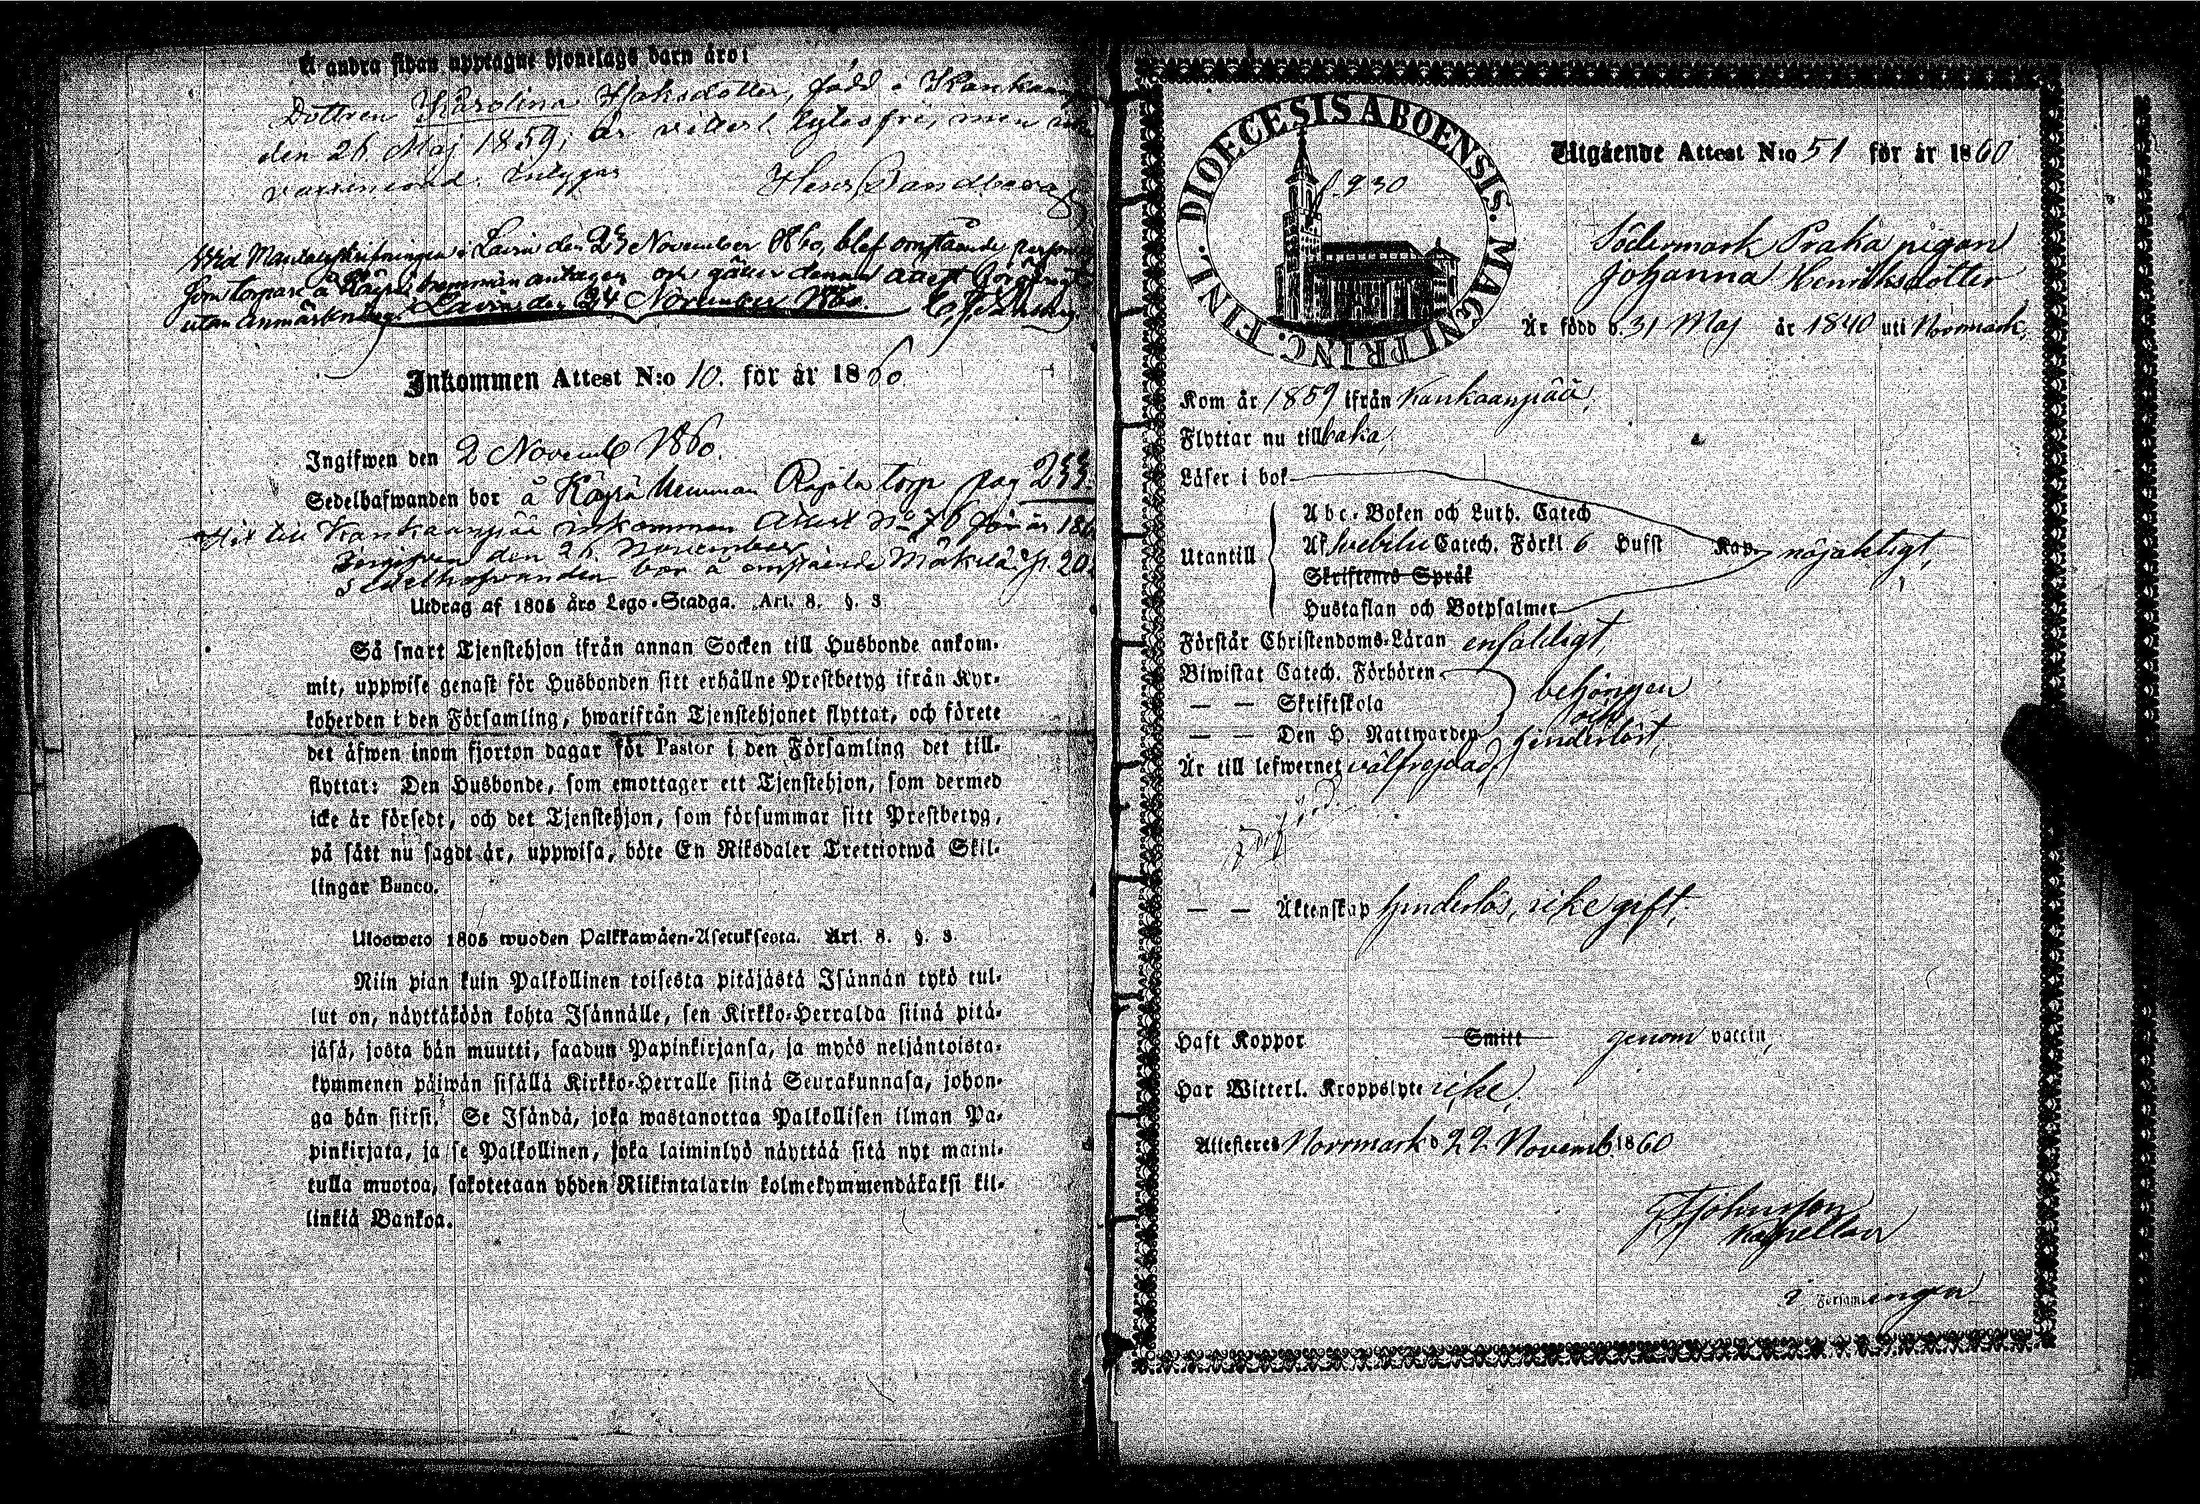 Å andra sidan upptagne hjonelags barn äro:
Dottren Karolina Isaksdotter, född i Kankaan
den 26 Maj 1859; är vitterl. lytesfri, men
vaccinerad. intygar
Hens Sandberg
Vid Mantalsskrifningen i Lavia den 23 November 1860, blef omstående person
som torpare å Käyrä hemman antagen och gäller denna attest
utan anmärkning. Lavia den 24 November 1860.
Inkommen Attest N:o 10. för år 1860
Ingifwen den 2 Novemb 1860.
Sedelhafwanden bor å Käyrä Neuman Rajala torp pag 253.
Hit till Kankaanpää inkommen Attest No 76 för år 186
Ingifven den 26 November
Sedelhafvanden bor å omstående Mäkelä. p. 20
Utdrag af 1805 års Lego-Stadga. Art. 8. §. 3.
Så snart Tjenstehjon ifrån annan Socken till Husbonde ankom-
mit, uppwise genast för Husbonden sitt erhållne Prestbetyg ifrån Kyr-
koherden i den Församling, hwarifrån Tjenstehjonet flyttat, och förete
det äfwen inom fjorton dagar för Pastor i den Församling det till-
flyttat: Den Husbonde, som emottager ett Tjenstehjon, som dermed
icke är försedt, och det Tjenstehjon, som försummar sitt Prestbetyg,
på sätt nu sagdt är, uppwisa, böte En Riksdaler Trettiotwå Skil-
lingar Banco.
Ulosweto 1805 wuoden Palkkawäen-Asetuksesta. Art. 8. §. 3.
Niin pian kuin Palkollinen toisesta pitäjästä Isännän tykö tul-
lut on, näyttäköön kohta Isännälle, sen Kirkko-Herralda siinä pitä-
jäsä, josta hän muutti, saadun Papinkirjansa, ja myös neljäntoista-
kymmenen päiwän sisällä Kirkko-Herralle siinä Seurakunnasa, johon-
ga hän siirsi. Se Isändä, joka wastanottaa Palkollisen ilman Pa-
pinkirjata, ja se Palkollinen, joka laiminlyö näyttää sitä nyt maini-
tulla muotoa, sakotetaan yhden Riikintalarin kolmekymmendäkaksi kil-
linkiä Bankoa.
DIOECESIS ABOENSIS. MAGNI PRINC. FINL.
f. 930
Utgående Attest N:o 51 för år 1860
Södermark Praka pigan
Johanna Henriksdotter
Är född d. 31 Maj år 1840 uti Norrmark,
Kom år 1859 ifrån Kankaanpää,
Flyttar nu tillbaka,
Läser i bok
Utantill
Abc-Boken och Luth. Catech
Af Svebilii Catech. Förkl 6 Hufst Kap. nöjaktigt,
Skriftenes Språk
Hustaflan och Botpsalmer
Förstår Christendoms-Läran enfaldigt,
Biwistat Catech. Förhören
— — Skriftskola
— — Den H. Nattwarden
behörigen
och
hinderlöst,
Är till lefwernet välfrejdad,
— — Äktenskap hinderlös, icke gift,
Haft Koppor Smitt genom vaccin,
Har Witterl. Kroppslyte icke,
Attesteres Norrmark d 22 Novemb. 1860
Johnsson
Kapellan
i Församlingen